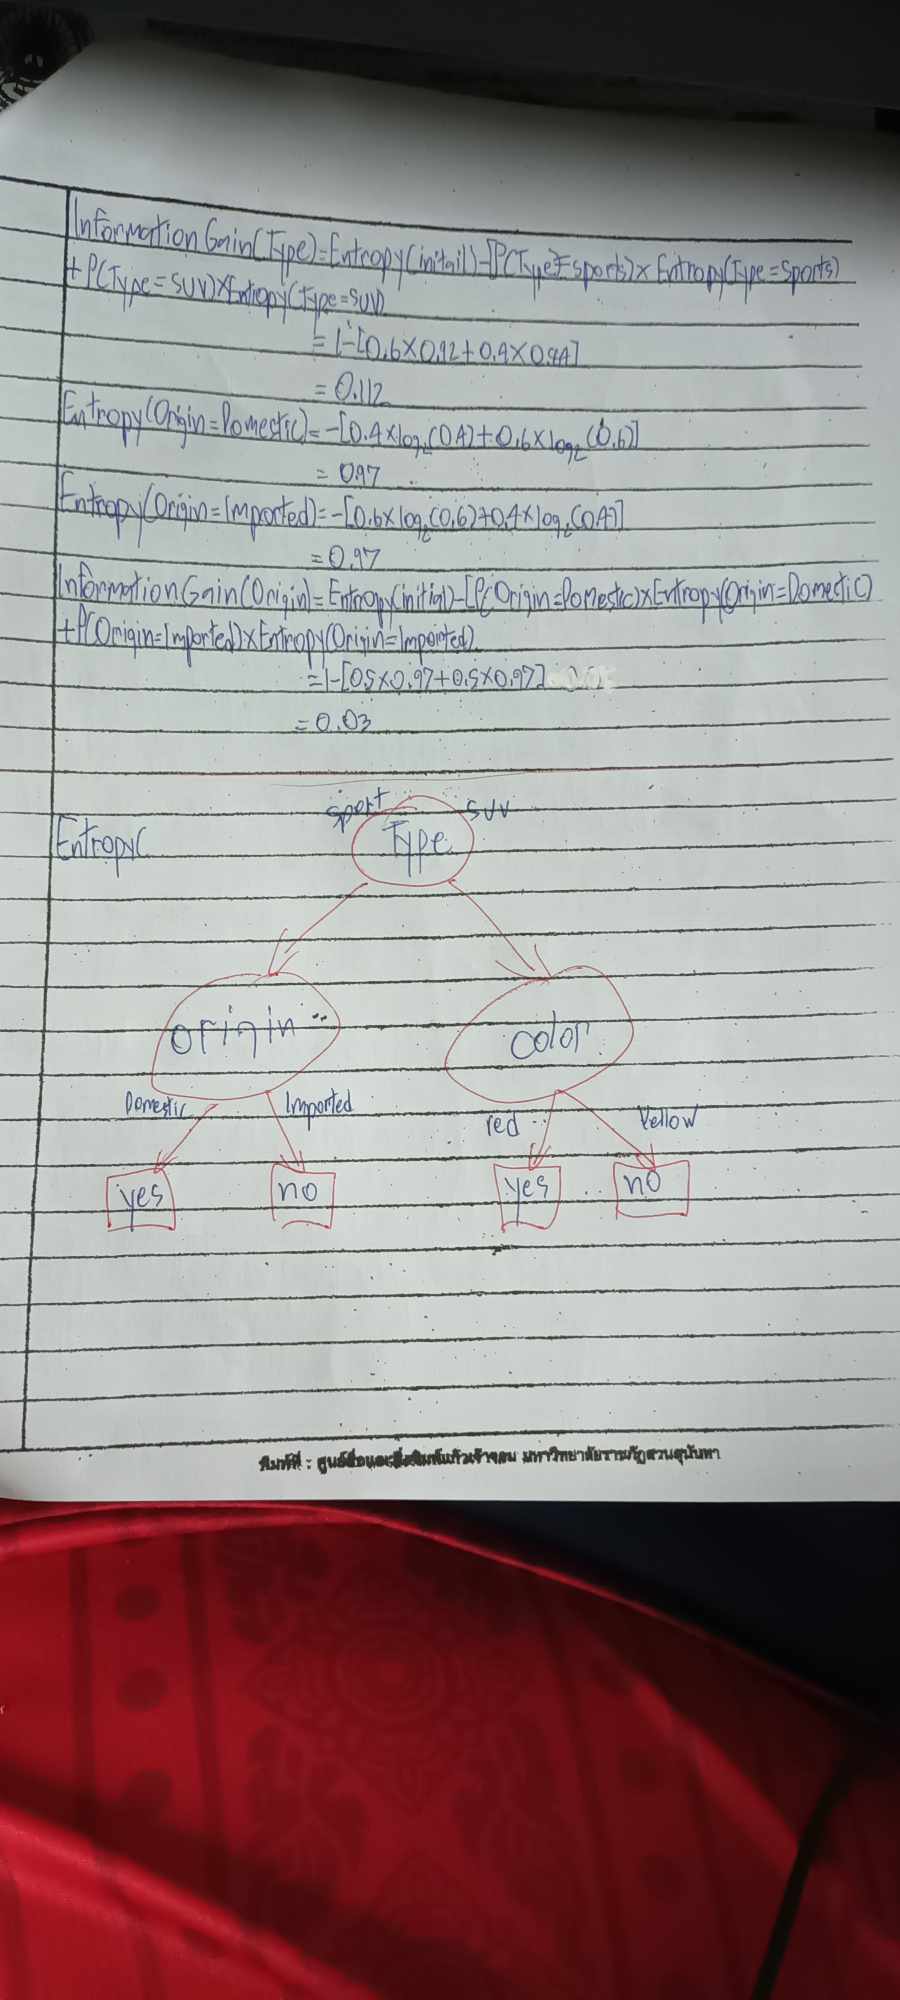 Information Gain(Type)=Entropy(initail)-[P(Type=sports)×Entropy(Type=sports)
+P(Type=SUV)×Entropy(Type=SUV)
=1-[0.6×0.92+0.4×0.84]
=0.112
Entropy(Origin=Domestic)=-[0.4×log₂(0.4)+0.6×log₂(0.6)]
=0.97
Entropy(Origin=Imported)=-[0.6×log₂(0.6)+0.4×log₂(0.4)]
=0.97
Information Gain(Origin)=Entropy(initial)-[P(Origin=Domestic)×Entropy(Origin=Domestic)
+P(Origin=Imported)×Entropy(Origin=Imported)
=1-[0.5×0.97+0.5×0.97]
=0.03
sport SUV
Entropy( Type
origin color
Domestic Imported red Yellow
yes no yes no
พิมพ์ที่ : ศูนย์สื่อและสิ่งพิมพ์แก้วเจ้าจอม มหาวิทยาลัยราชภัฏสวนสุนันทา